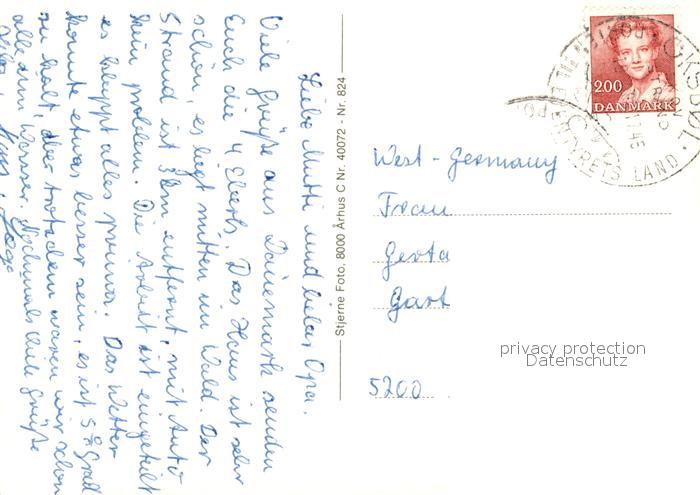 Liebe Mutti und lieber Opa.
Viele Grüße aus Dänemark senden
Euch die 4 Eberts. Das Haus ist sehr
schön, es liegt mitten im Wald. Der
Strand ist 3 km entfernt, mit Auto
kein problem. Die Arbeit ist eingeteilt
es klappt alles prima. Das Wetter
könnte etwas besser sein, es ist 5° Grad
zu kalt, aber trotzdem waren wir schon
alle im Wasser. Nochmals viele Grüße
Stjerne Foto, 8000 Århus C Nr. 40072 - Nr. 824
2.00
DANMARK
OKSBØL
LAND
West-Germany
Frau
Gerta
Gart
5200
privacy protection
Datenschutz